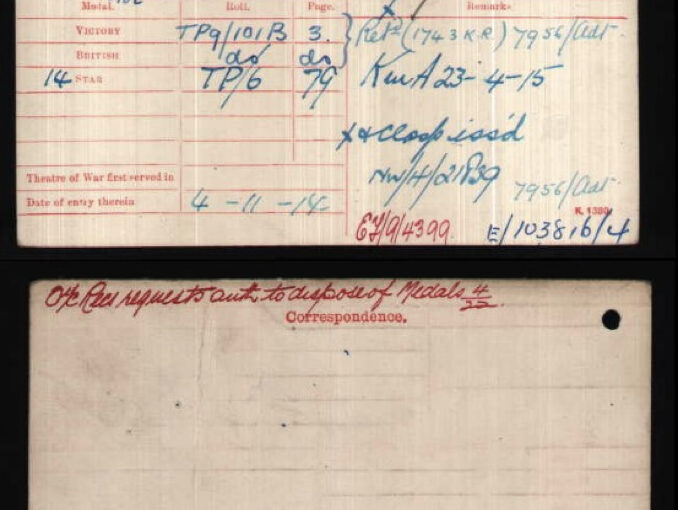 Medal. Roll. Page. Remarks.
VICTORY TP9/101B 3. Retd (1743 K.R) 7956/Adt
BRITISH do do
14 STAR TP/6 79 K in A 23-4-15
x & Clasp iss'd
NW/4/21839 7956/Adt
Theatre of War first served in
Date of entry therein 4-11-14
K. 1380.
EF/9/4399. E/103816/4
O/c Rec requests auth. to dispose of Medals 4/22.
Correspondence.